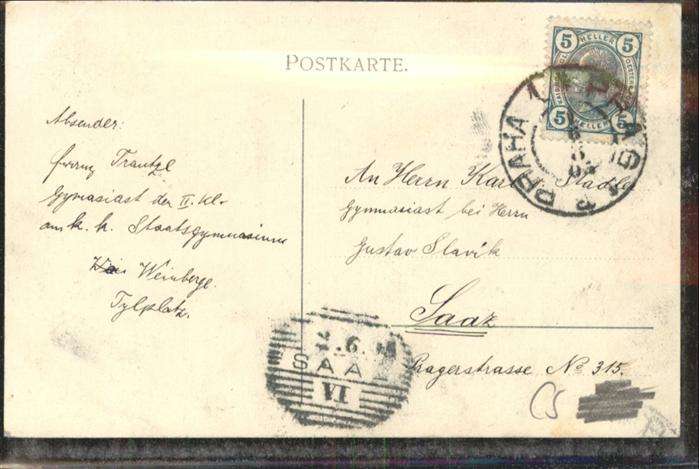 POSTKARTE.
5 HELLER 5
5 HELLER 5
PRAHA 1 PRAG 1
Absender:
Franz Trautzl
Gymnasiast der II. Kl.
am k. k. Staatsgymnasium
Weinberge.
Tylplatz.
An Herrn Karl Stadler
Gymnasiast bei Herrn
Gustav Slavik
Saaz
Pragerstrasse No 315.
2.6.
SAAZ
VI
CS